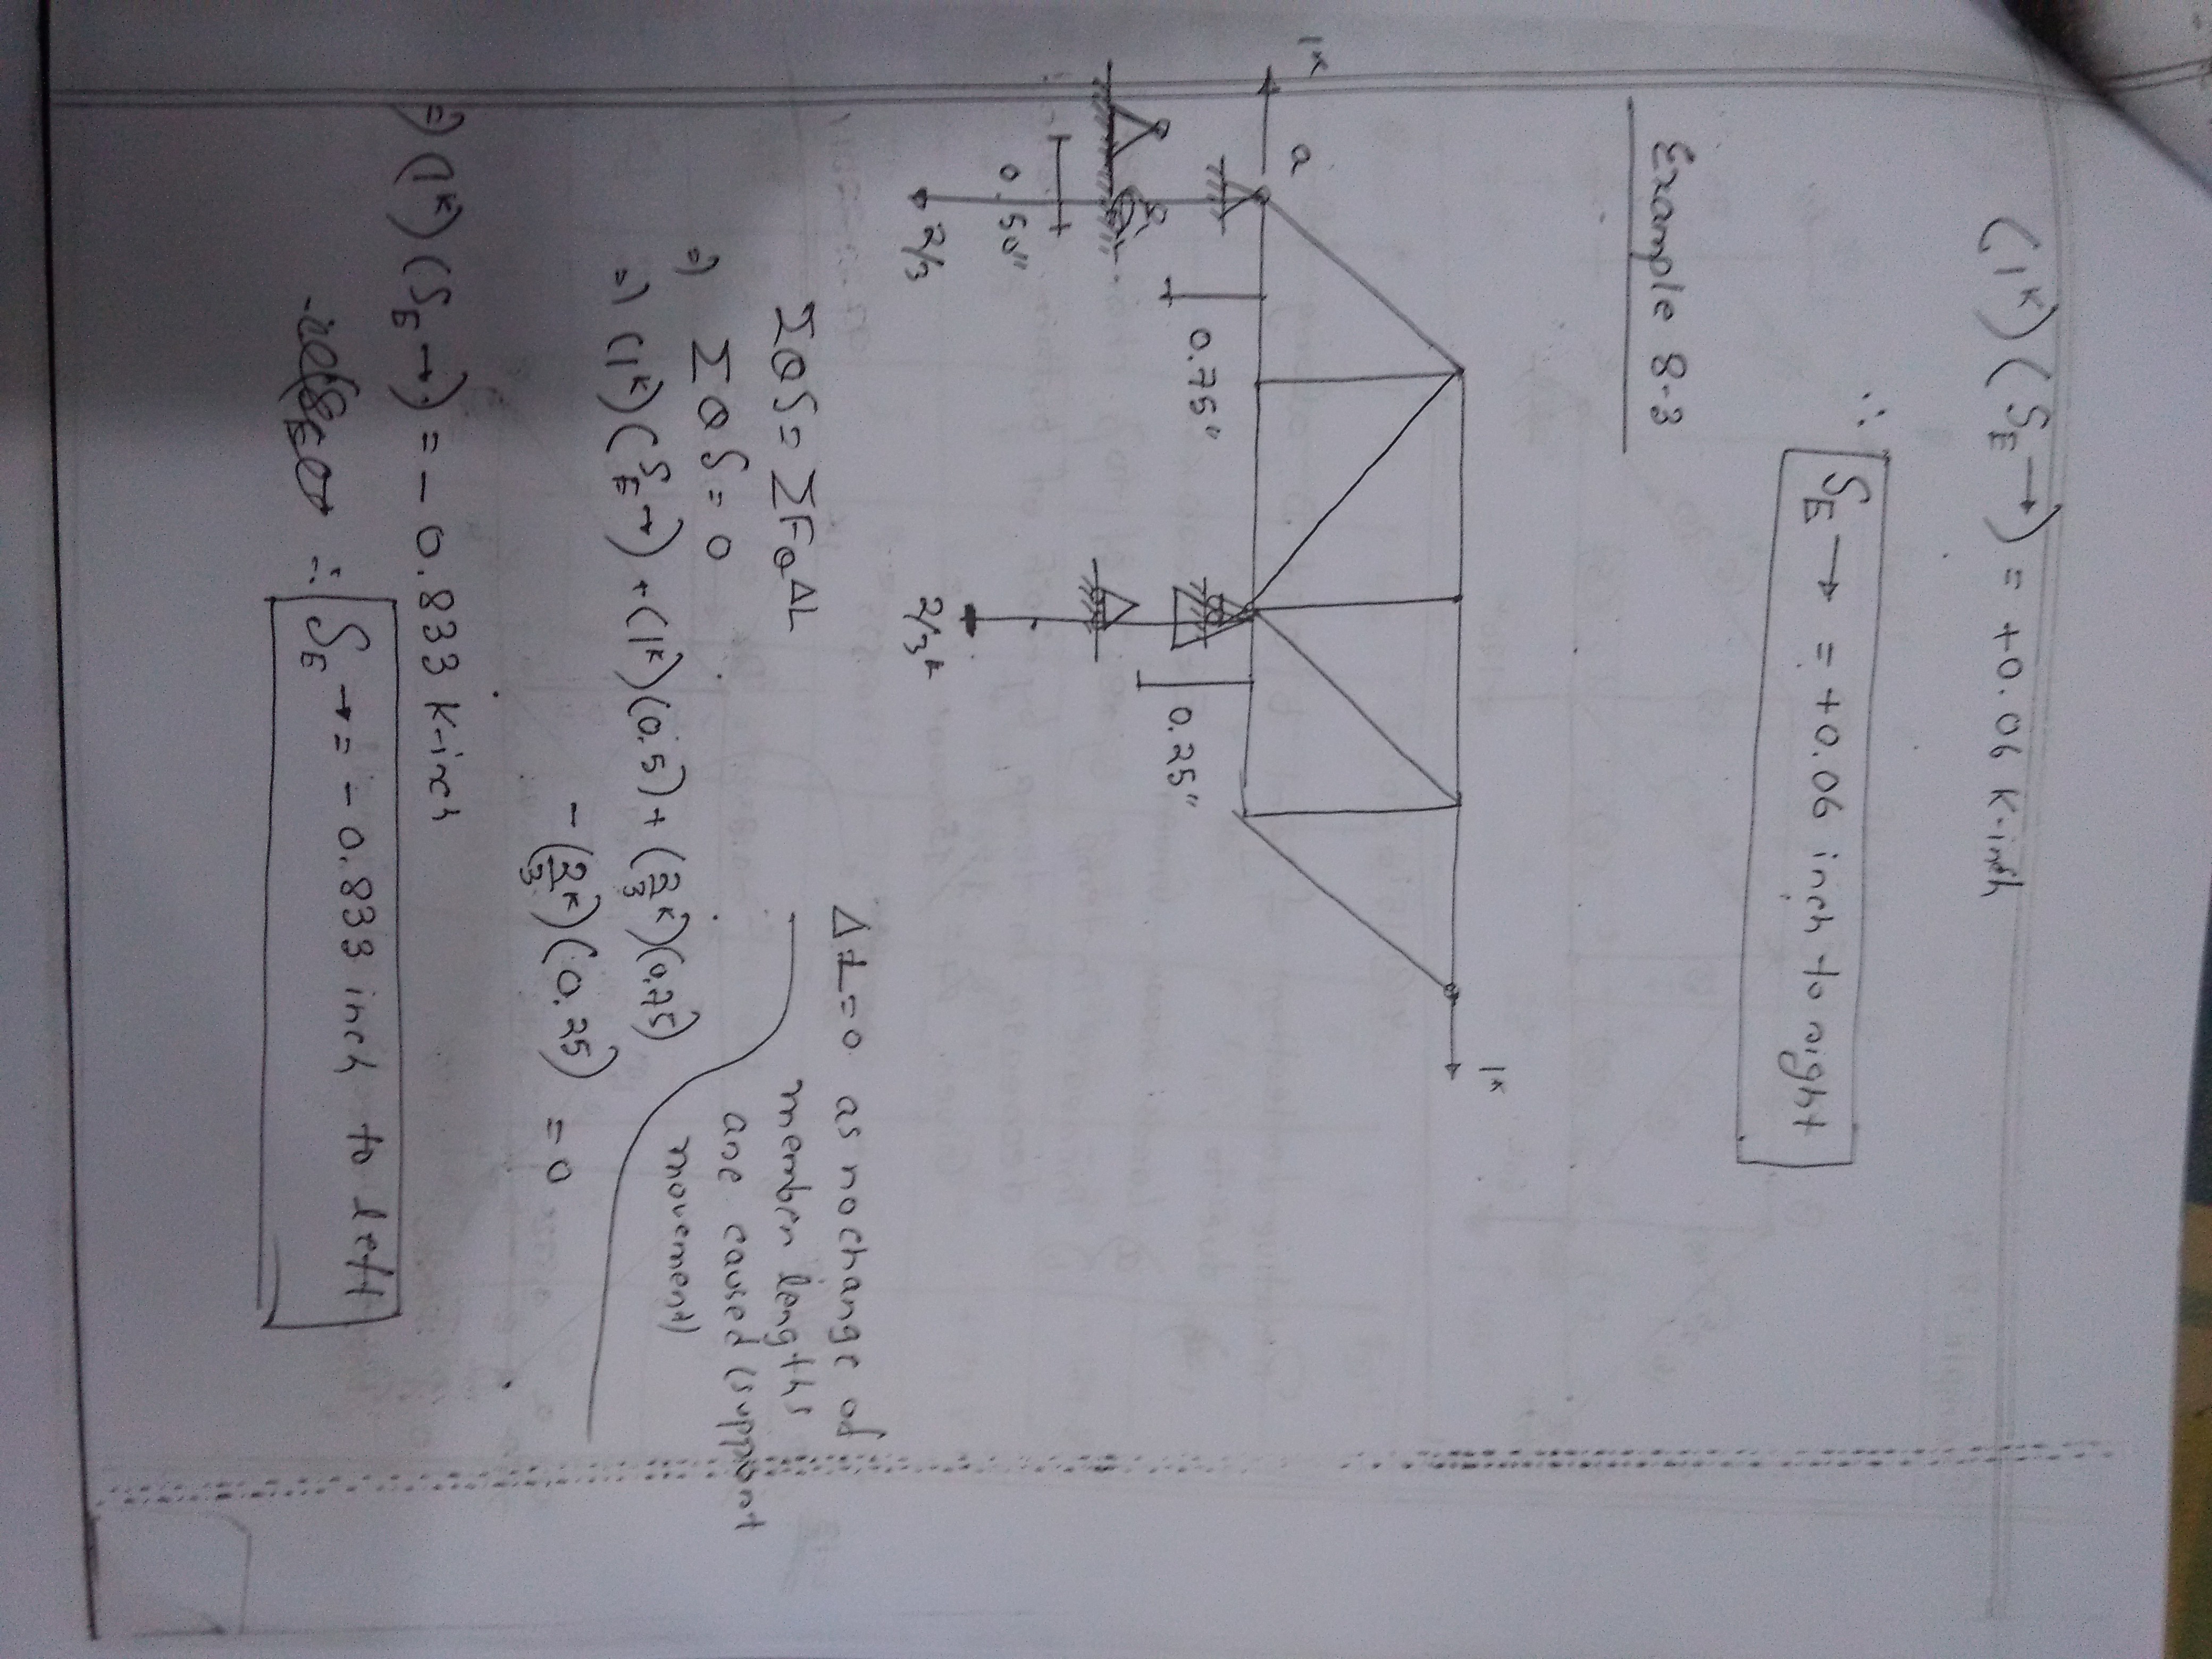 (1ᴷ)(δE→) = +0.06 K-inch
∴ δE→ = +0.06 inch to right
Example 8.3
1ᴷ
1ᴷ
a
0.75"
0.25"
0.50"
2/3
2/3ᴷ
ΣQδ = ΣFQΔL
ΔL=0 as no change of
member lengths
are caused (support
movement)
⇒ ΣQδ = 0
⇒ (1ᴷ)(δE→) + (1ᴷ)(0.5) + (2/3ᴷ)(0.75)
- (2/3ᴷ)(0.25) = 0
⇒ (1ᴷ)(δE→) = - 0.833 K-inch
∴ δE→ = - 0.833 inch to left